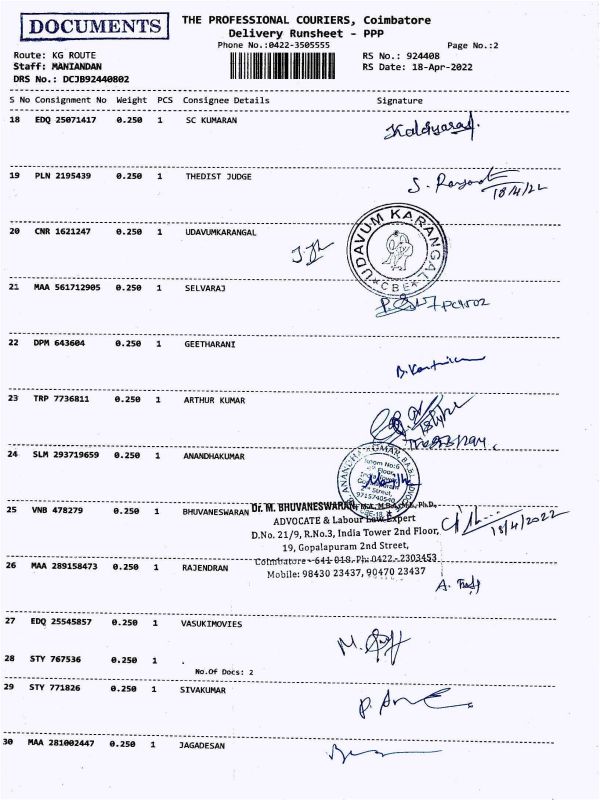 DOCUMENTS
THE PROFESSIONAL COURIERS, Coimbatore
Delivery Runsheet - PPP
Phone No.:0422-3505555
Page No.:2
Route: KG ROUTE
RS No.: 924408
Staff: MANIANDAN
RS Date: 18-Apr-2022
DRS No.: DCJB92440802
S No Consignment No Weight PCS Consignee Details Signature
18 EDQ 25071417 0.250 1 SC KUMARAN
19 PLN 2195439 0.250 1 THEDIST JUDGE
18/4/22
20 CNR 1621247 0.250 1 UDAVUMKARANGAL
UDAVUM KARANGAL
CBE
21 MAA 561712905 0.250 1 SELVARAJ
22 DPM 643604 0.250 1 GEETHARANI
23 TRP 7736811 0.250 1 ARTHUR KUMAR
24 SLM 293719659 0.250 1 ANANDHAKUMAR
25 VNB 478279 0.250 1 BHUVANESWARAN
Dr. M. BHUVANESWARAN,
ADVOCATE & Labour Law Expert
18/4/2022
D.No. 21/9, R.No.3, India Tower 2nd Floor,
19, Gopalapuram 2nd Street,
Coimbatore - 641 018. Ph: 0422 - 2303453
Mobile: 98430 23437, 90470 23437
26 MAA 289158473 0.250 1 RAJENDRAN
27 EDQ 25545857 0.250 1 VASUKIMOVIES
28 STY 767536 0.250 1 .
No.Of Docs: 2
29 STY 771826 0.250 1 SIVAKUMAR
30 MAA 281002447 0.250 1 JAGADESAN